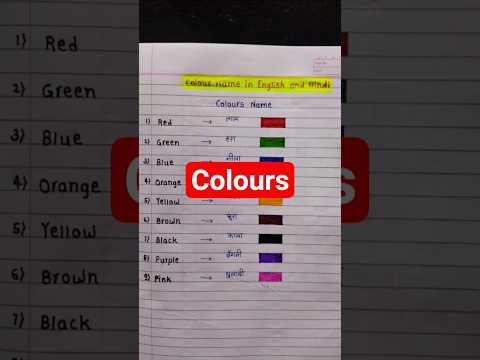 Colour Name in English and Hindi
Colours Name
1) Red → लाल
2) Green → हरा
3) Blue → नीला
4) Orange
Colours
5) Yellow
6) Brown → भूरा
7) Black → काला
8) Purple → बैंगनी
9) Pink → गुलाबी
1) Red
2) Green
3) Blue
4) Orange
5) Yellow
6) Brown
7) Black